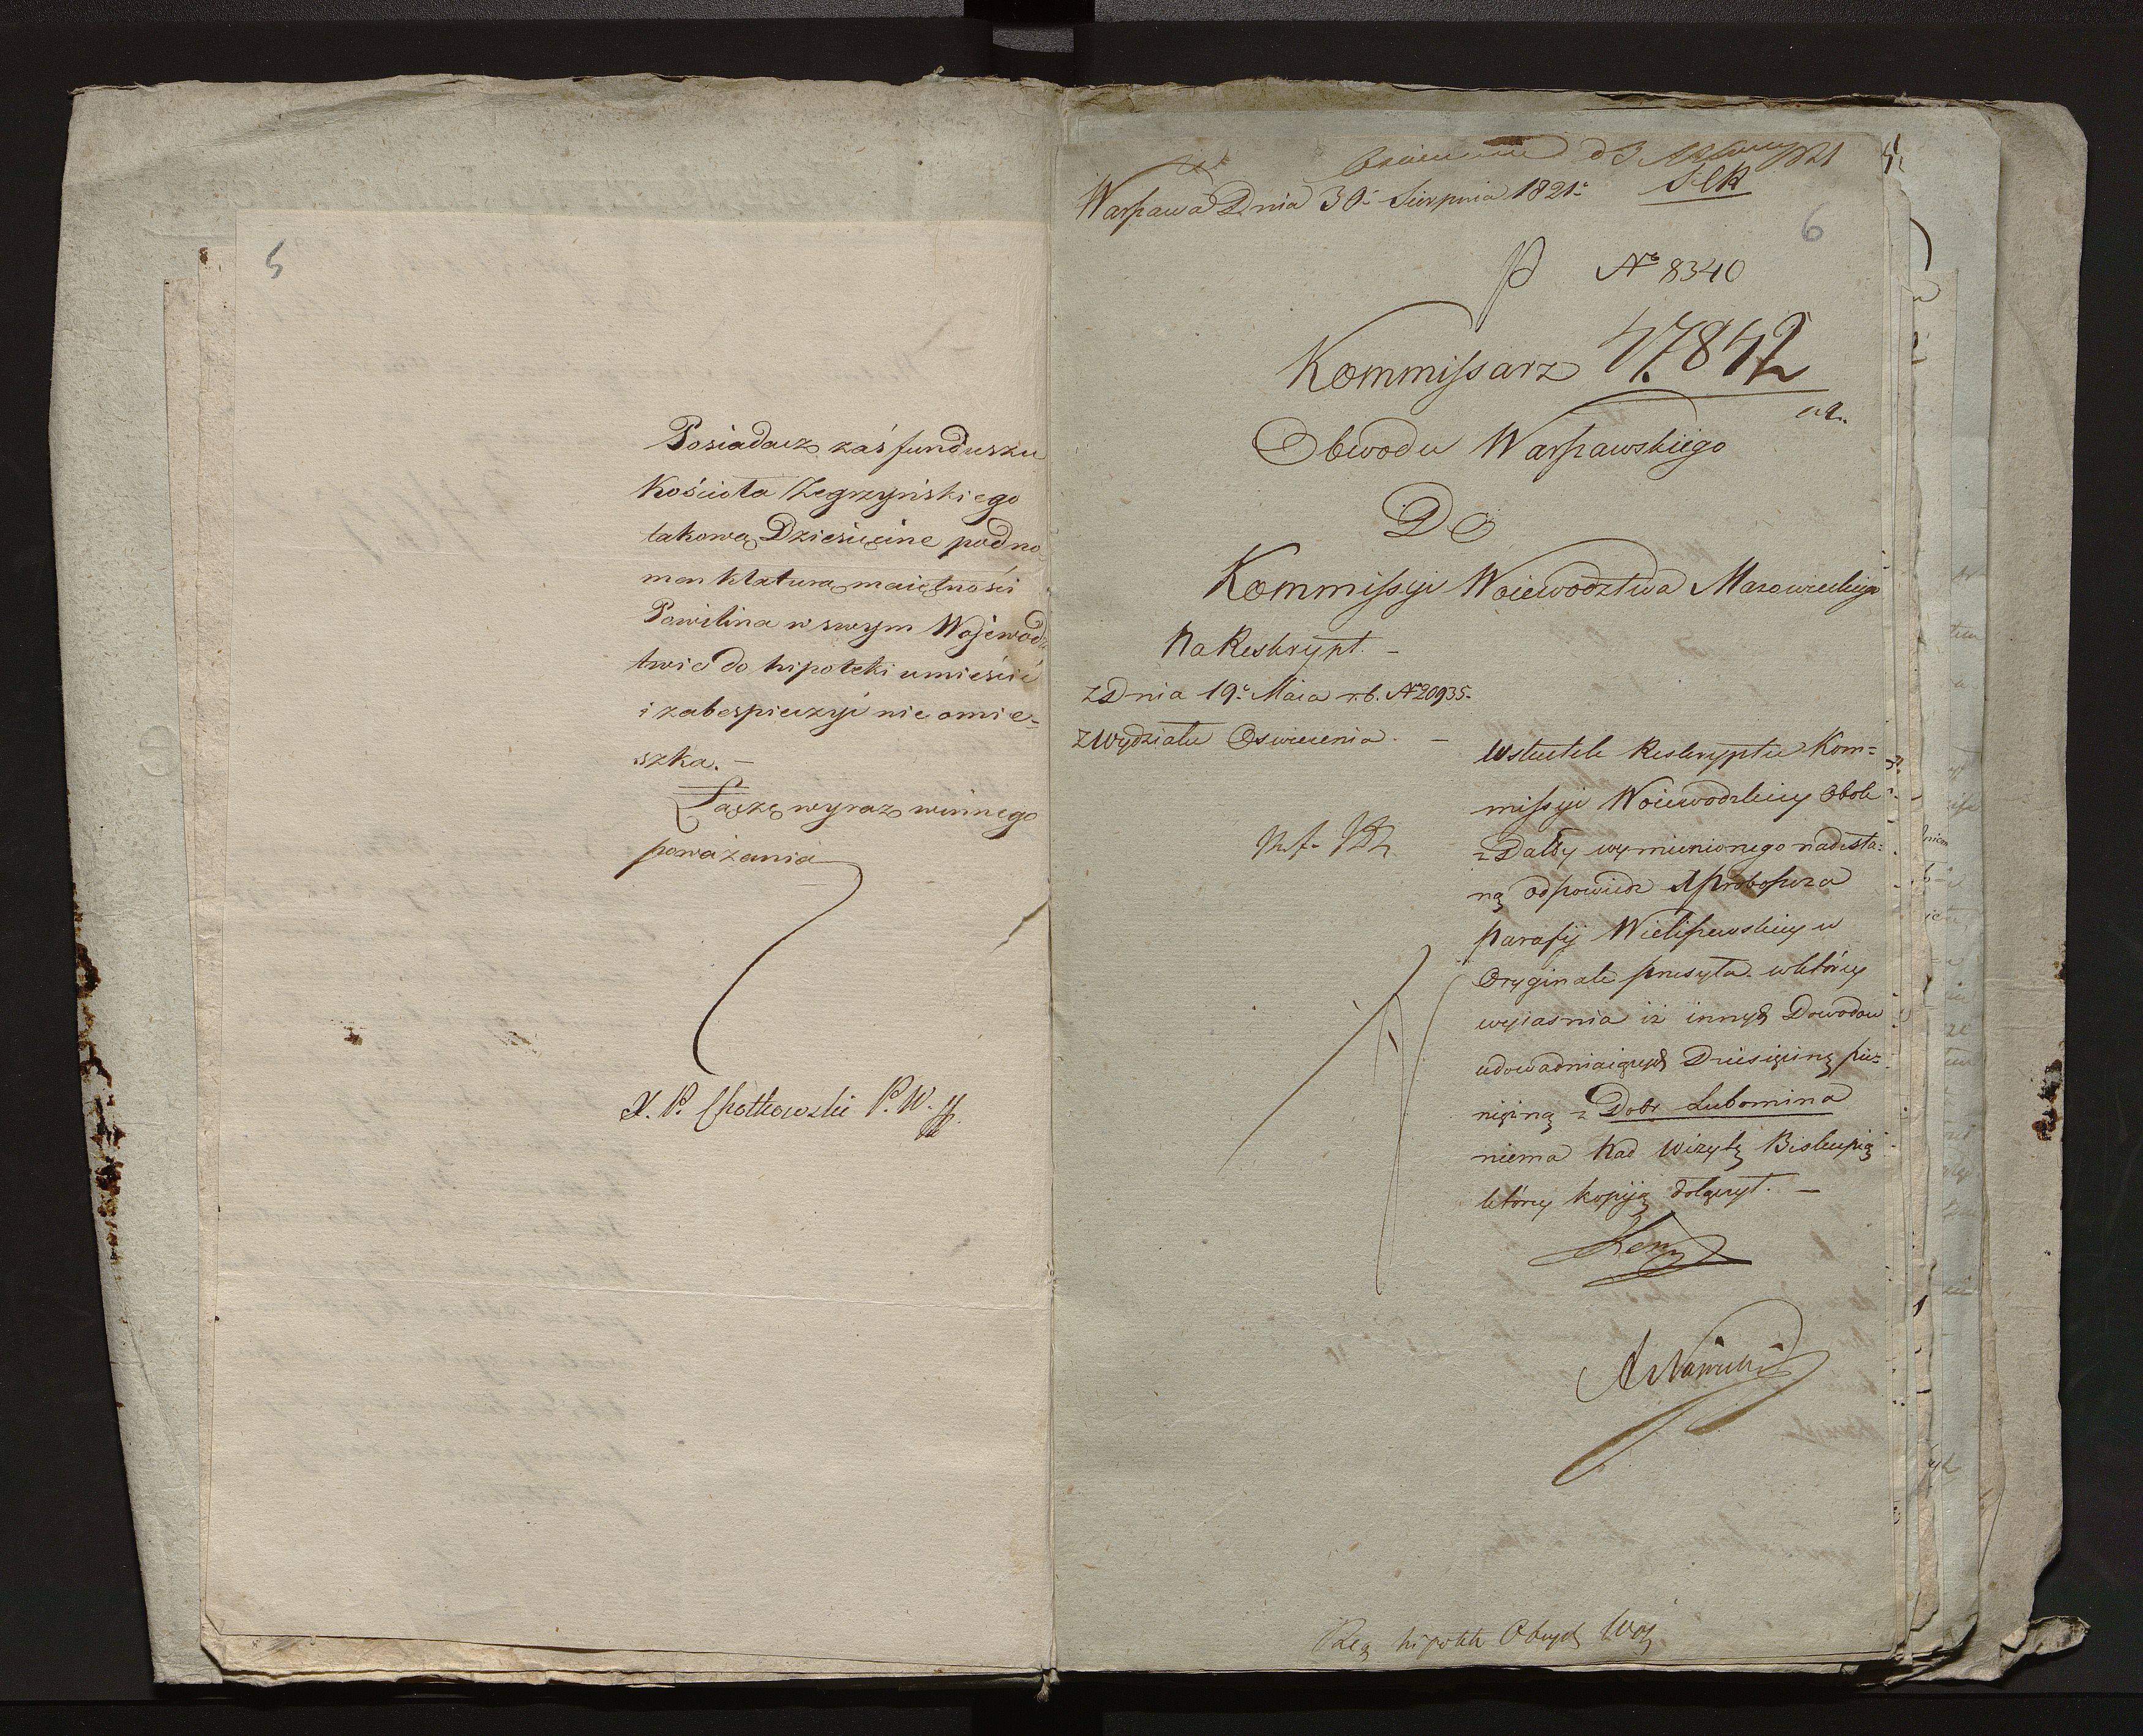 5
Posiadacz zaś funduszu
Kościoła Zegrzyńskiego
takową Dziesięcine pod no
menklaturą maiętności
Powilina w swym Wojewódz
twie do hipoteki umieścić
i zabespieczyć nie omie=
szka. —
Łączę wyraz winnego
poważania
X. P. Chotkowski P. W.
d 3
1821
Warszawa Dnia 30. Sierpnia 1821.
6
No 8340
Kommissarz 47842
Obwodu Warszawskiego
Do
Kommissyi Woiewodztwa Mazowieckiego
Na Reskrypt. —
z Dnia 19. Maia r. b. No 20935.
z Wydziału Oswiecenia. —
Wskutek Reskryptu Kom=
missyi Woiewodzkiey Obok
z Datty wymienionego nadesła=
ną odpowiedz Proboszcza
Parafij Wieliszewskiey w
Oryginale przesyła. w którey
wyiasnia iż innych Dowodow
udowadniaiących Dziesięcinę pie=
niężną z Dobr Lubomina
niema Nad Wizytę Biskupią
którey kopiją dołączył. —
hipotek Obuch Woj